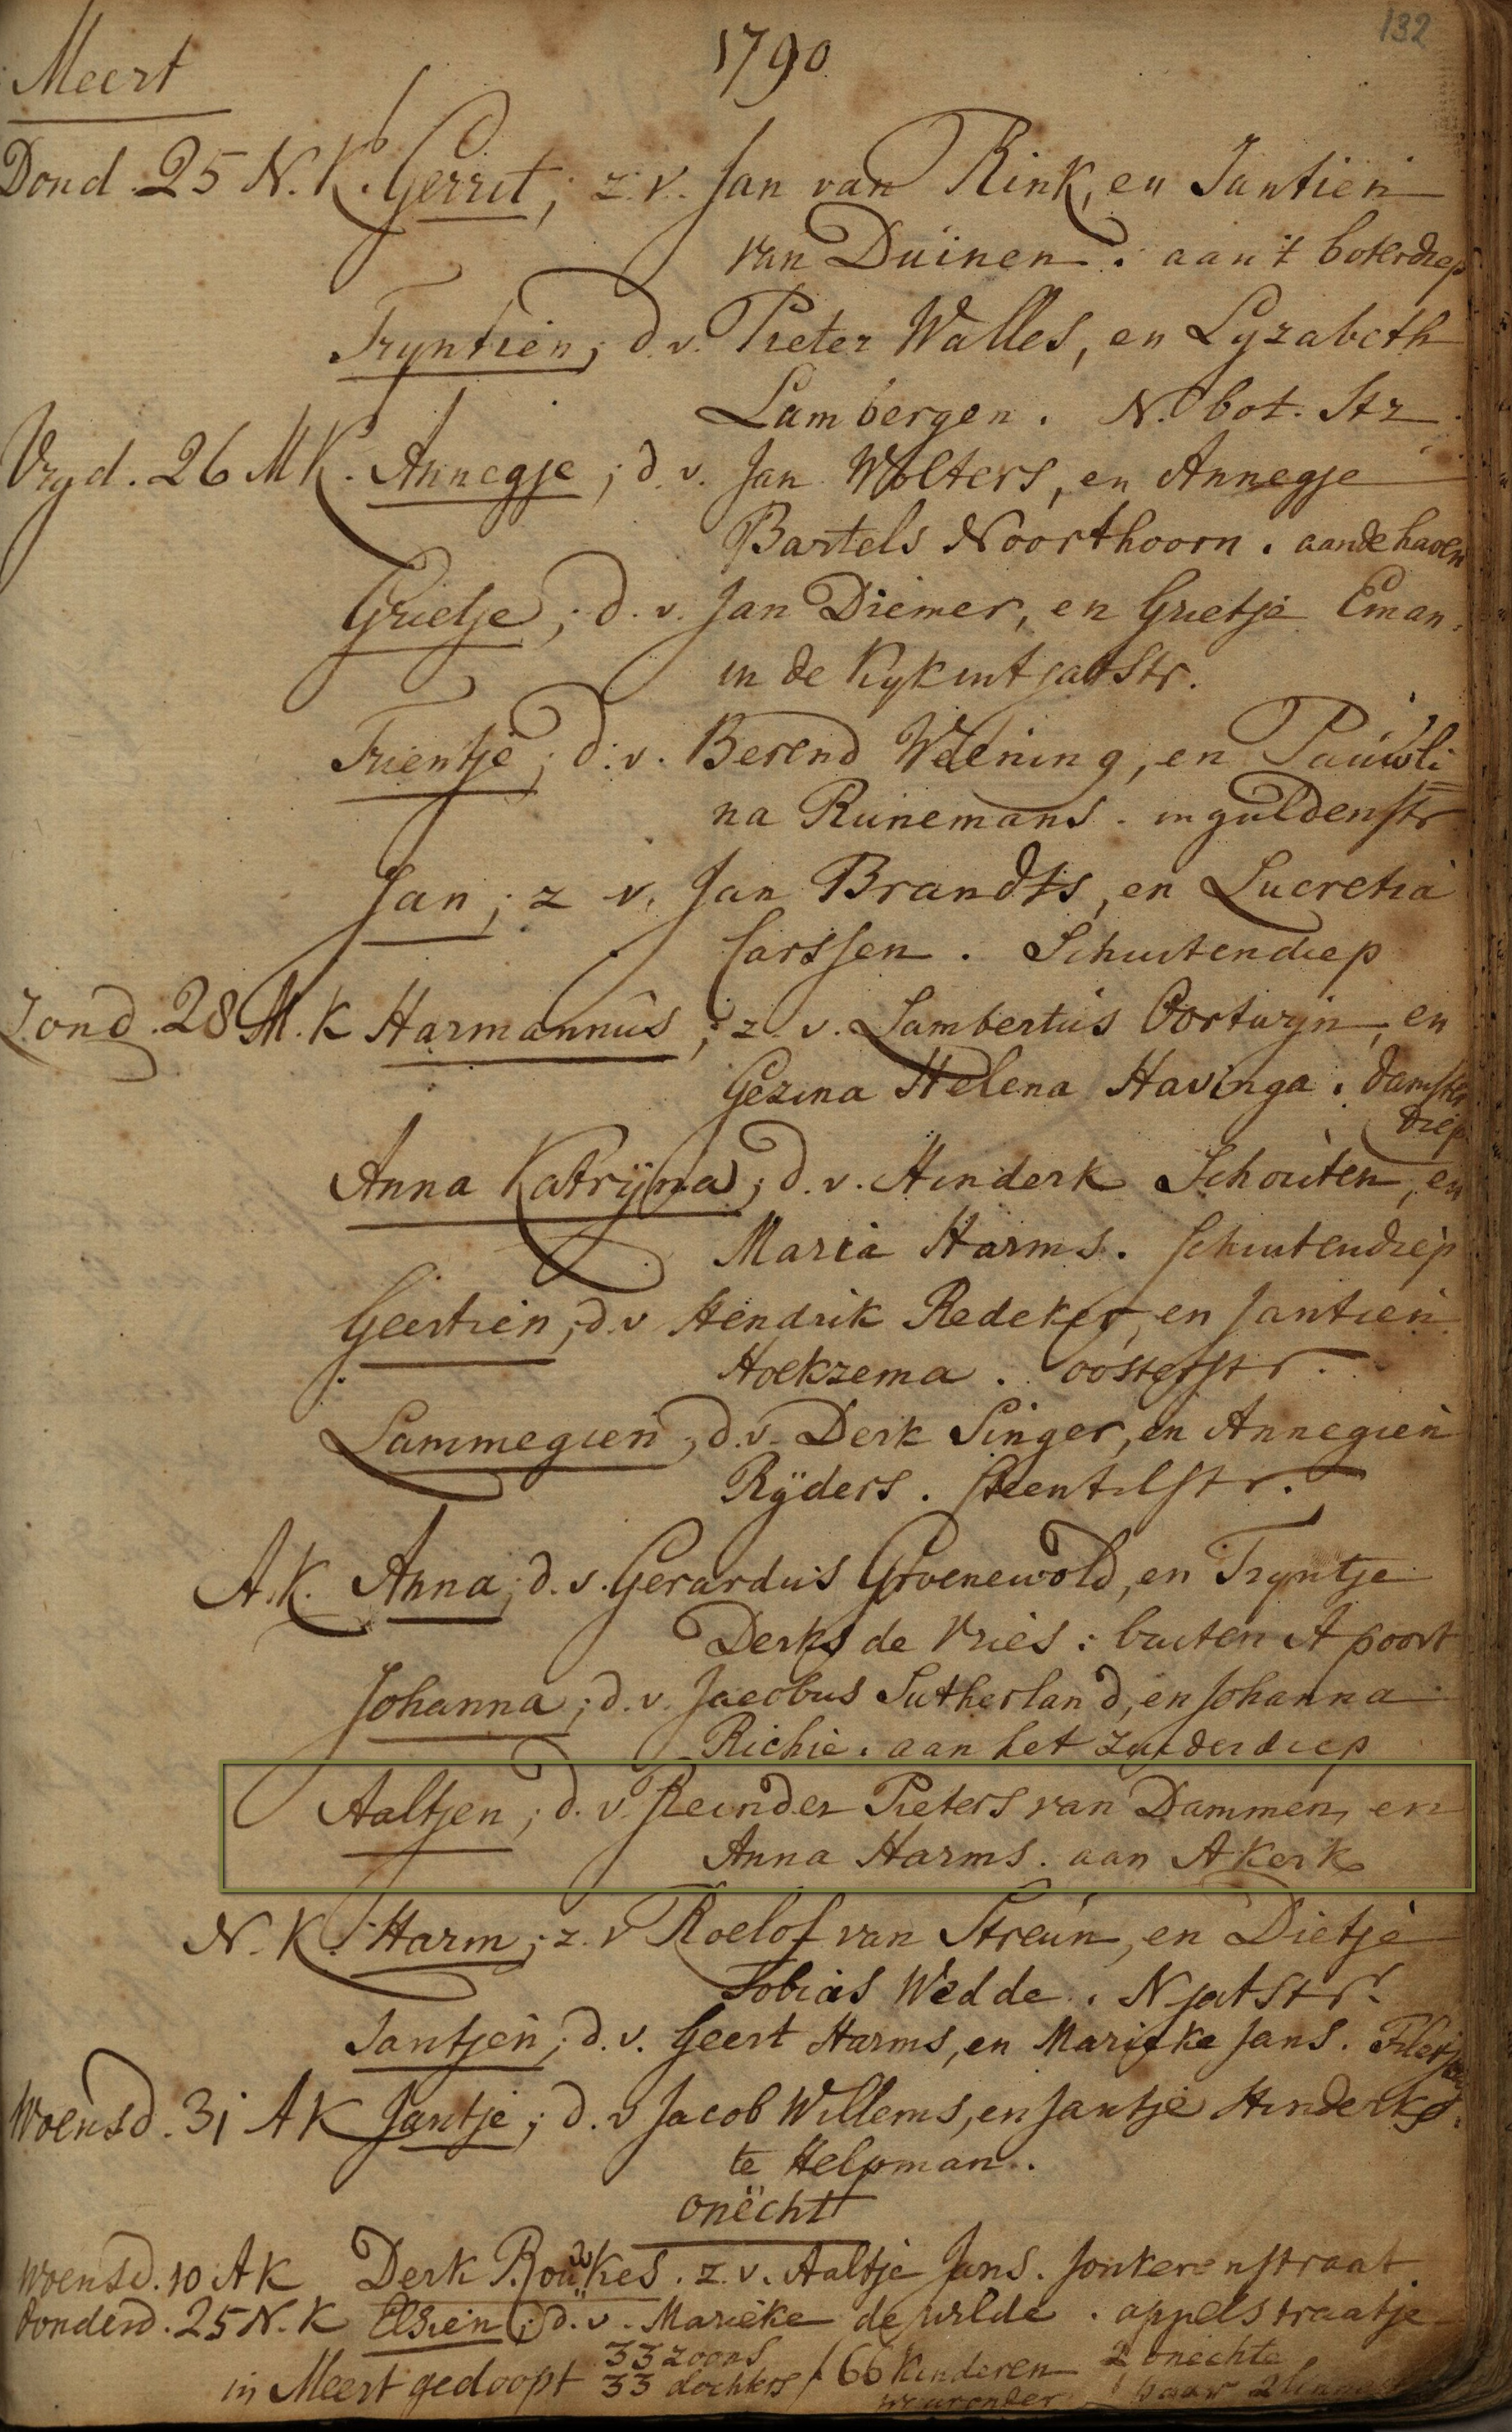 132
1790
Meert
Dond. 25 N. K. Gerrit; z. v. Jan van Rink, en Jantien
van Duinen. aan 't boterdiep
Tryntien; d. v. Pieter Walles, en Lyzabeth
Lambergen. N. bot. Str.
Vryd. 26 M K. Annegje; d. v. Jan Wolters, en Annegje
Bartels Noorthoorn. aan de haven
Grietje; d. v. Jan Diemer, en Grietje Eman.
in de Kykintjatstr.
Trientje; d. v. Berend Weening, en Pauwli
na Runemans. in guldenstr
Jan; z v. Jan Brandts, en Lucretia
Carssen. Schuitendiep
Zond. 28 M. K Harmannus; z. v. Lambertus Oortwyn, en
Gezina Helena Havinga. damster
diep
Anna Katrijna; d. v. Hinderk Schouten, en
Maria Harms. Schuitendiep
Geertien; d. v Hendrik Redeker, en Jantien
Hoekzema. oosterstr.
Lammegien; d. v. Derk Singer, en Annegien
Rÿders. Steentilstr.
A. K. Anna; d. v. Gerardus Groenewold, en Tryntje
Derks de Vries: buiten A poort
Johanna; d. v. Jacobus Sutherland, en Johanna
Richie. aan het Zuiderdiep
Aaltjen; d. v. Reinder Pieters van Dammen, en
Anna Harms. aan A Kerk
N. K. Harm; z. v Roelof van Streun, en Dietje
Tobias Wedde. N jatstr.
Jantjen; d. v. Geert Harms, en Marieke Jans.
Woensd. 31 A K Jantje; d. v Jacob Willems, en Jantje Hinderks.
te Helpman.
onëcht
Woensd. 10 A K Derk Roukes. z. v. Aaltje Jans. Jonkerenstraat
donderd. 25 N. K Elsien; d. v. Marieke de wilde. appelstraatje
33 zoons
in Meert gedoopt 33 dochters / 66 Kinderen 2 onechte
waaronder 1 paar